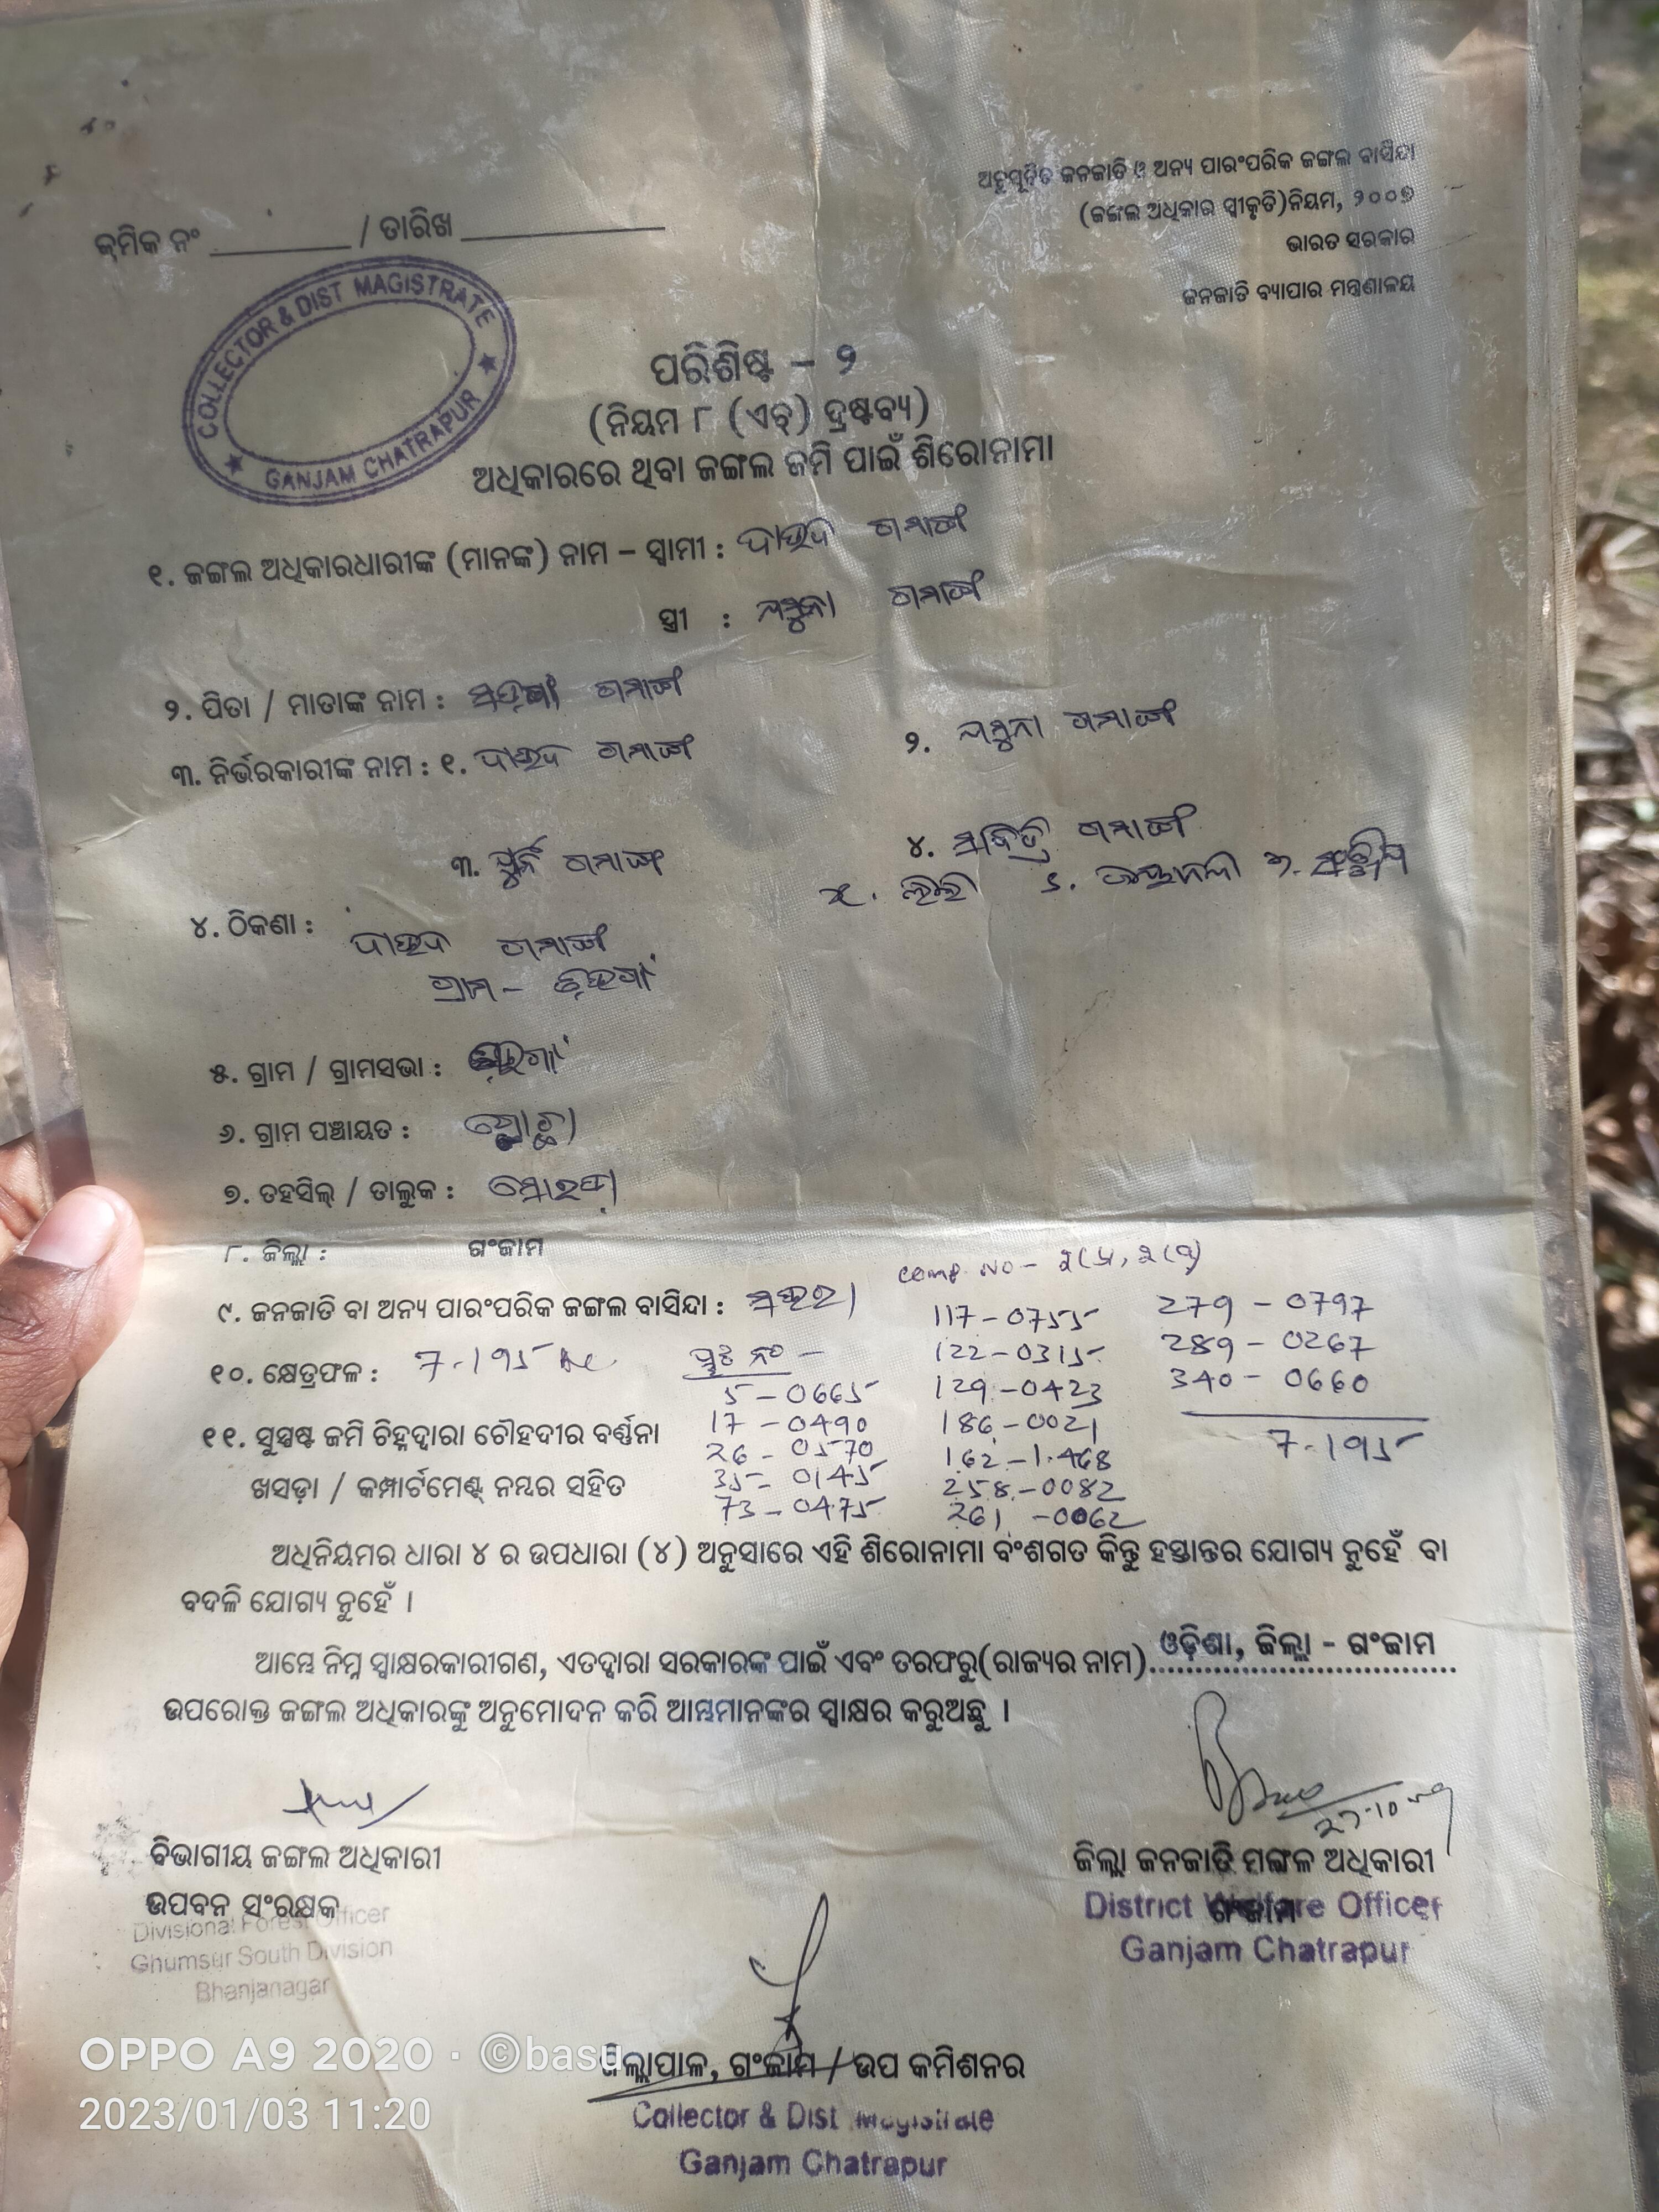 ଅନୁସୂଚିତ ଜନଜାତି ଓ ଅନ୍ୟ ପାରଂପରିକ ଜଙ୍ଗଲ ବାସିନ୍ଦା
(ଜଙ୍ଗଲ ଅଧିକାର ସ୍ଵୀକୃତି)ନିୟମ, ୨୦୦୭
ଭାରତ ସରକାର
ଜନଜାତି ବ୍ୟାପାର ମନ୍ତ୍ରଣାଳୟ
କ୍ରମିକ ନଂ ________ / ତାରିଖ ____________
COLLECTOR & DIST MAGISTRATE
★ GANJAM CHATRAPUR ★
ପରିଶିଷ୍ଟ – ୨
(ନିୟମ ୮ (ଏଚ୍) ଦ୍ରଷ୍ଟବ୍ୟ)
ଅଧିକାରରେ ଥିବା ଜଙ୍ଗଲ ଜମି ପାଇଁ ଶିରୋନାମା
୧. ଜଙ୍ଗଲ ଅଧିକାରଧାରୀଙ୍କ (ମାନଙ୍କ) ନାମ – ସ୍ଵାମୀ : ଦାଉଦ ଗମାଙ୍ଗ
ସ୍ତ୍ରୀ : ଗମାଙ୍ଗ
୨. ପିତା / ମାତାଙ୍କ ନାମ : ଗମାଙ୍ଗ
୩. ନିର୍ଭରକାରୀଙ୍କ ନାମ : ୧. ଦାଉଦ ଗମାଙ୍ଗ ୨. ଗମାଙ୍ଗ
୩. ଗମାଙ୍ଗ ୪. ଗମାଙ୍ଗ
୪. ଠିକଣା :
ଦାଉଦ ଗମାଙ୍ଗ
ଗ୍ରାମ –
୫. ଗ୍ରାମ / ଗ୍ରାମସଭା :
୬. ଗ୍ରାମ ପଞ୍ଚାୟତ :
୭. ତହସିଲ୍ / ତାଲୁକ : ସୋରଡ଼ା
୮. ଜିଲ୍ଲା : ଗଂଜାମ
Comp. No –
୯. ଜନଜାତି ବା ଅନ୍ୟ ପାରଂପରିକ ଜଙ୍ଗଲ ବାସିନ୍ଦା :
୧୦. କ୍ଷେତ୍ରଫଳ : 7.195 Ac
5 – 0665
17 – 0490
26 – 0570
35 – 0145
73 – 0475
117 – 0755
122 – 0315
129 – 0423
186 – 0021
162 – 1.468
258 – 0082
261 – 0062
279 – 0797
289 – 0267
340 – 0660
7.195
୧୧. ସୁସ୍ପଷ୍ଟ ଜମି ଚିହ୍ନଦ୍ଵାରା ଚୌହଦୀର ବର୍ଣ୍ଣନା
ଖସଡ଼ା / କମ୍ପାର୍ଟମେଣ୍ଟ୍ ନମ୍ବର ସହିତ
ଅଧିନିୟମର ଧାରା ୪ ର ଉପଧାରା (୪) ଅନୁସାରେ ଏହି ଶିରୋନାମା ବଂଶଗତ କିନ୍ତୁ ହସ୍ତାନ୍ତର ଯୋଗ୍ୟ ନୁହେଁ ବା
ବଦଳି ଯୋଗ୍ୟ ନୁହେଁ ।
ଆମ୍ଭେ ନିମ୍ନ ସ୍ଵାକ୍ଷରକାରୀଗଣ, ଏତଦ୍ଵାରା ସରକାରଙ୍କ ପାଇଁ ଏବଂ ତରଫରୁ(ରାଜ୍ୟର ନାମ) ଓଡ଼ିଶା, ଜିଲ୍ଲା - ଗଂଜାମ
ଉପରୋକ୍ତ ଜଙ୍ଗଲ ଅଧିକାରଙ୍କୁ ଅନୁମୋଦନ କରି ଆମ୍ଭମାନଙ୍କର ସ୍ଵାକ୍ଷର କରୁଅଛୁ ।
ବିଭାଗୀୟ ଜଙ୍ଗଲ ଅଧିକାରୀ
ଉପବନ ସଂରକ୍ଷକ
Divisional Forest Officer
Ghumsur South Division
Bhanjanagar
ଜିଲ୍ଲା ଜନଜାତି ମଙ୍ଗଳ ଅଧିକାରୀ
ଗଂଜାମ
District Welfare Officer
Ganjam Chatrapur
ଜିଲ୍ଲାପାଳ, ଗଂଜାମ / ଉପ କମିଶନର
Collector & Dist Magistrate
Ganjam Chatrapur
OPPO A9 2020 · ©basu
2023/01/03 11:20